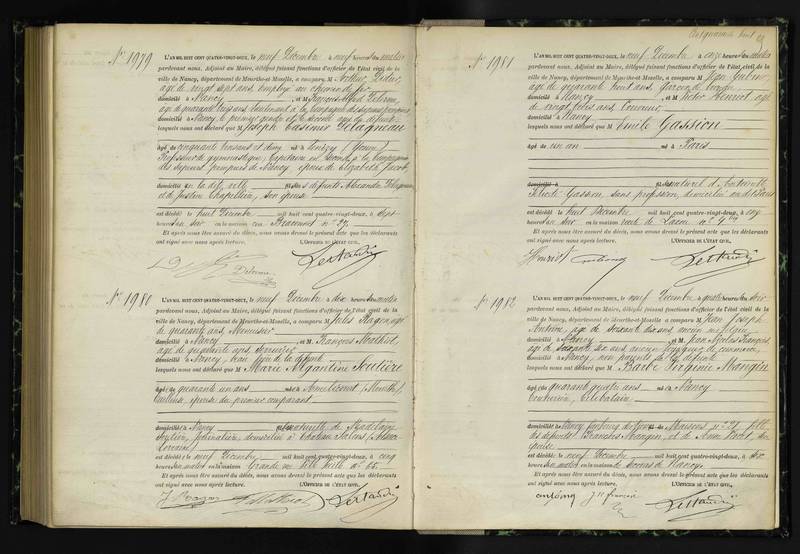 N° 1979
L'AN MIL HUIT CENT QUATRE-VINGT-DOUX, le neuf Décembre à neuf heures du matin
pardevant nous, Adjoint au Maire, délégué faisant fonctions d'officier de l'état civil de la
ville de Nancy, département de Meurthe-et-Moselle, a comparu M Arthur
age de vingt sept ans, employé au chemin de fer
domicilié à Nancy et M François Alfred Delorme
age de quarante
à Nancy le premier gendre et le second ami du défunt
lesquels nous ont déclaré que M Joseph Casimir Delagneau
âgé de cinquante né à (Yonne)
Professeur de gymnastique, Capitaine
des sapeurs pompiers de Nancy époux de Elizabeth Jacob
domicilié en la dite ville fils de défunts Alexandre
et de Justine Chapellier, son épouse
est décédé le huit Décembre mil huit cent quatre-vingt-doux, à sept
heures du soir en la maison rue n° 27
Et après nous être assuré du décès, nous avons dressé le présent acte que les déclarants
ont signé avec nous après lecture. L'OFFICIER DE L'ÉTAT CIVIL,
Delorme
N° 1980
L'AN MIL HUIT CENT QUATRE-VINGT-DOUX, le neuf Décembre à dix heures du matin
pardevant nous, Adjoint au Maire, délégué faisant fonctions d'officier de l'état civil de la
ville de Nancy, département de Meurthe-et-Moselle, a comparu M Jules agé
de quarante ans, Menuisier
domicilié à Nancy et M François
age de quarante ans,
domicilié à Nancy, beau frère de la défunte
lesquels nous ont déclaré que M Marie Argantine Soulière
âgée de quarante un ans née à
épouse du premier comparant
domiciliée à Nancy fille naturelle de Madelaine
domiciliée à Château Salins (Alsace
Lorraine)
est décédée le neuf Décembre mil huit cent quatre-vingt-doux, à cinq
heures du matin en la maison Grande rue n° 65
Et après nous être assuré du décès, nous avons dressé le présent acte que les déclarants
ont signé avec nous après lecture. L'OFFICIER DE L'ÉTAT CIVIL,
Cinquante huit
N° 1981
L'AN MIL HUIT CENT QUATRE-VINGT-DOUX, le neuf Décembre à onze heures du matin
pardevant nous, Adjoint au Maire, délégué faisant fonctions d'officier de l'état civil de la
ville de Nancy, département de Meurthe-et-Moselle, a comparu M Jean
age de quarante huit ans, Garçon de
domicilié à Nancy et M Victor Henriot agé
de vingt trois ans, Couvreur
domicilié à Nancy
lesquels nous ont déclaré que M Emile Gassion
âgé de un an né à Paris
domicilié à fils naturel d'Antoinette
Félicité Gassion, sans profession, domiciliée audit Paris
est décédé le huit Décembre mil huit cent quatre-vingt-doux, à onze
heures du soir en la maison route de Laxou n° 9 bis
Et après nous être assuré du décès, nous avons dressé le présent acte que les déclarants
ont signé avec nous après lecture. L'OFFICIER DE L'ÉTAT CIVIL,
Henriot
N° 1982
L'AN MIL HUIT CENT QUATRE-VINGT-DOUX, le neuf Décembre à quatre heures du soir
pardevant nous, Adjoint au Maire, délégué faisant fonctions d'officier de l'état civil de la
ville de Nancy, département de Meurthe-et-Moselle, a comparu M Jean Joseph
Antoine, age de soixante dix ans, ancien
domicilié à Nancy et M Jean Nicolas François,
age de soixante dix ans, ancien voyageur de commerce,
domicilié à Nancy, non parents de la défunte
lesquels nous ont déclaré que M Barbe Virginie Mangin
âgée de quarante quatre ans née à Nancy
Couturière, Célibataire
domiciliée à Nancy Faubourg des Trois Maisons n° 21 fille
des défunts François Mangin, et de Anne son
épouse
est décédée le neuf Décembre mil huit cent quatre-vingt-doux, à dix
heures du matin en la maison de Secours de Nancy
Et après nous être assuré du décès, nous avons dressé le présent acte que les déclarants
ont signé avec nous après lecture. L'OFFICIER DE L'ÉTAT CIVIL,